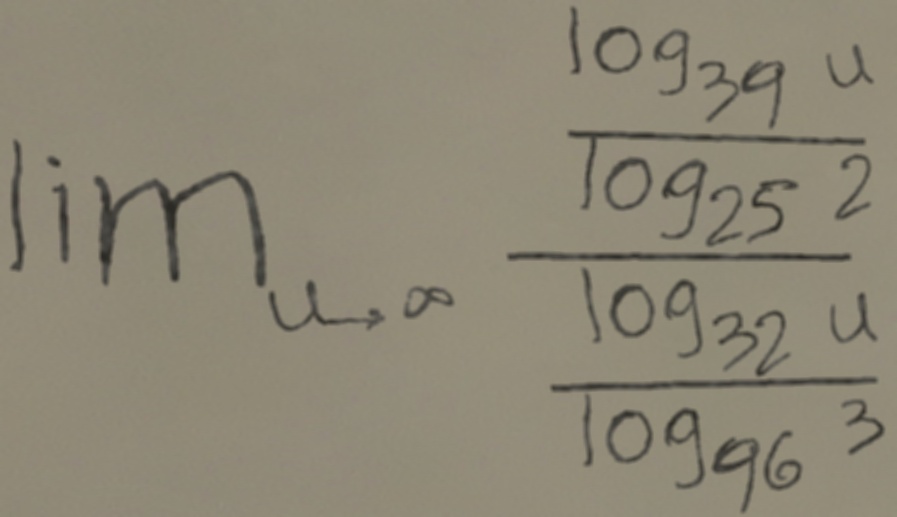 lim u→∞ \frac{\frac{log_{39} u}{log_{25} 2}}{\frac{log_{32} u}{log_{96} 3}}